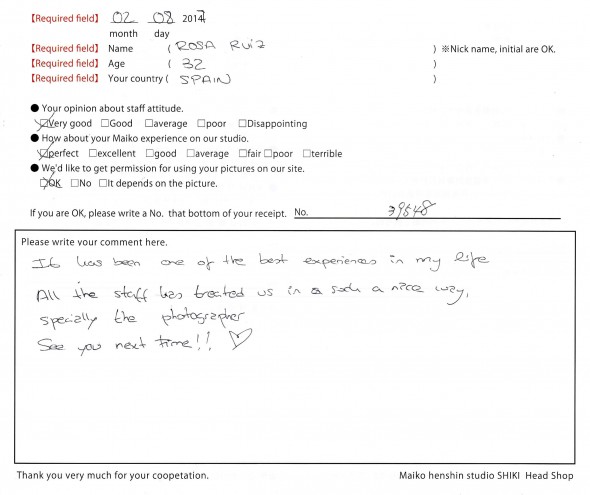 【Required field】 02 08 2017
month day
【Required field】 Name ( ROSA RUIZ ) ※Nick name, initial are OK.
【Required field】 Age ( 32 )
【Required field】 Your country ( SPAIN )
● Your opinion about staff attitude.
☑Very good □Good □average □poor □Disappointing
● How about your Maiko experience on our studio.
☑perfect □excellent □good □average □fair □poor □terrible
● We'd like to get permission for using your pictures on our site.
☑OK □No □It depends on the picture.
If you are OK, please write a No. that bottom of your receipt. No. 39548
Please write your comment here.
It has been one of the best experiences in my life
All the staff has treated us in a such a nice way,
specially the photographer
See you next time!! ♡
Thank you very much for your coopetation. Maiko henshin studio SHIKI Head Shop